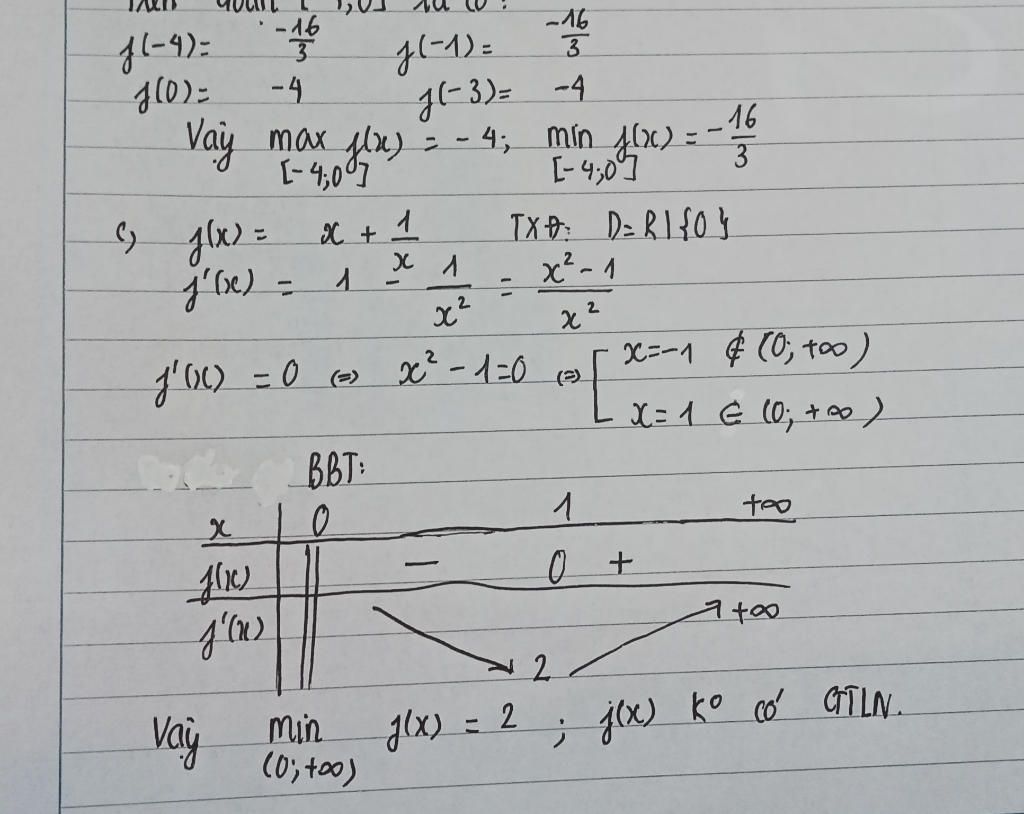 f(-4) = -16/3 f(-1) = -16/3
f(0) = -4 f(-3) = -4
Vậy max f(x) = -4; min f(x) = -16/3
[-4;0] [-4;0]
c, f(x) = x + 1/x TXĐ: D = R\{0}
f'(x) = 1 - 1/x² = (x² - 1)/x²
f'(x) = 0 ⇔ x² - 1 = 0 ⇔ [ x = -1 ∉ (0; +∞)
x = 1 ∈ (0; +∞)
BBT:
x 0 1 +∞
f(x) - 0 +
f'(x) 2 +∞
Vậy min f(x) = 2 ; f(x) ko có GTLN.
(0; +∞)